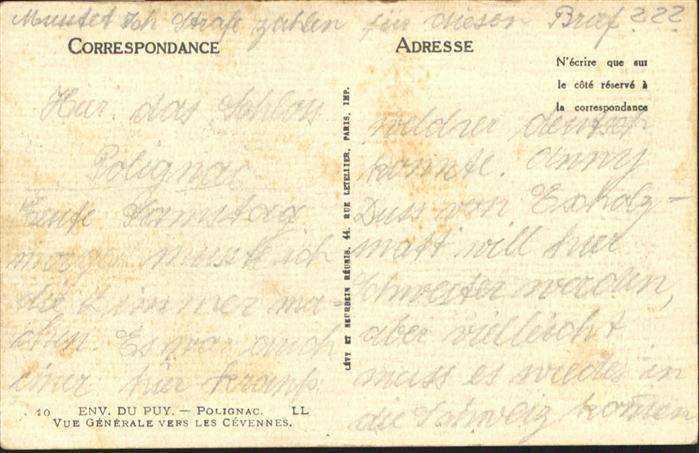 Musstet Ihr Strafe zahlen für diesen Brief ???
CORRESPONDANCE
ADRESSE
N'écrire que sur
le côté réservé à
la correspondance
Hier das Schloss
Polignac
Heute Samstag
morgen musst ich
die Zimmer ma=
chen. Es war auch
einer hier krank
welcher deutsch
konnte. Anny
Duss von Escholz-
matt will hier
Schwester werden,
aber vielleicht
muss es wieder in
die Schweiz kommen
LÉVY ET NEURDEIN RÉUNIS, 44, RUE LETELLIER, PARIS, IMP.
10 ENV. DU PUY. — POLIGNAC. LL
VUE GÉNÉRALE VERS LES CÉVENNES.